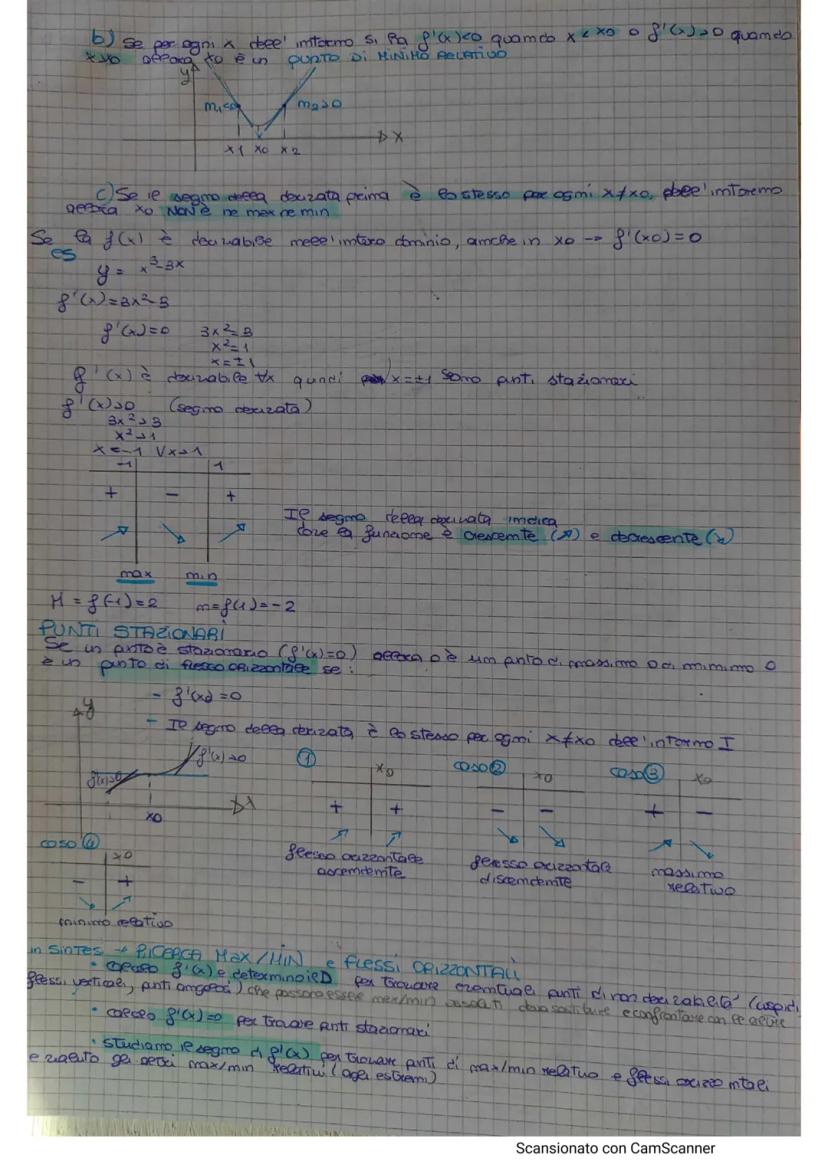 b) Se per ogni x dell'intorno si ha f'(x)<0 quando x<x0 o f'(x)>0 quando
x>x0 allora x0 è un PUNTO DI MINIMO RELATIVO
y
m1<0 m2>0
x1 x0 x2 x
c) Se il segno della derivata prima è lo stesso per ogni x≠x0, dell'intorno
allora x0 NON è ne max ne min
Se la f(x) è derivabile nell'intero dominio, anche in x0 → f'(x0)=0
es
y = x³-3x
f'(x)=3x²-3
f'(x)=0 3x²=3
x²=1
x=±1
f'(x) è derivabile ∀x quindi x=±1 sono punti stazionari
f'(x)>0 (segno derivata)
3x²>3
x²>1
x<-1 V x>1
-1 1
+ - +
Il segno della derivata indica
dove la funzione è crescente (↗) e decrescente (↘)
max min
M = f(-1)=2 m=f(1)=-2
PUNTI STAZIONARI
Se un punto è stazionario (f'(x)=0) allora o è un punto di massimo o di minimo o
è un punto di flesso orizzontale se:
- f'(x)=0
- Il segno della derivata è lo stesso per ogni x≠x0 dell'intorno I
y
f'(x)>0
f'(x)>0
x0 x
① x0
+ +
flesso orizzontale
ascendente
caso ② x0
- -
flesso orizzontale
discendente
caso ③ x0
+ -
massimo
relativo
caso ④
x0
- +
minimo relativo
in sintesi → RICERCA MAX/MIN e FLESSI ORIZZONTALI
• calcolo f'(x) e determino il D per trovare eventuali punti di non derivabilità (cuspidi,
flessi verticali, punti angolosi) che possono essere max/min assoluti devo sostituire e confrontare con le altre
• calcolo f'(x)=0 per trovare punti stazionari
• studiamo il segno di f'(x) per trovare punti di max/min relativo e flessi orizzontali
e valuto gli max/min relativi (agli estremi)
Scansionato con CamScanner